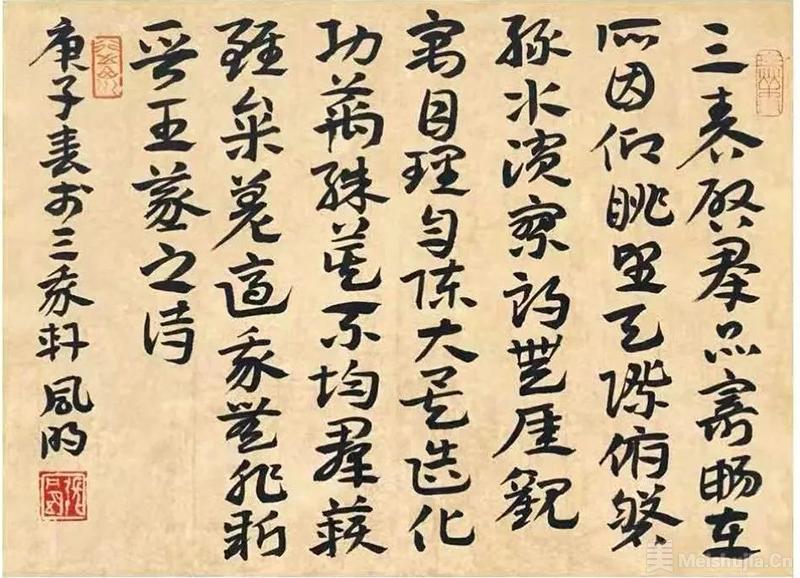 三春啓羣品寄暢在
所因仰眺望天際俯磐
綠水濱寥朗無厓觀
寓目理自陳大矣造化
功萬殊莫不均羣籟
雖參差適我無非新
晉王羲之詩
庚子春於三我軒
美 Meishujia.Cn